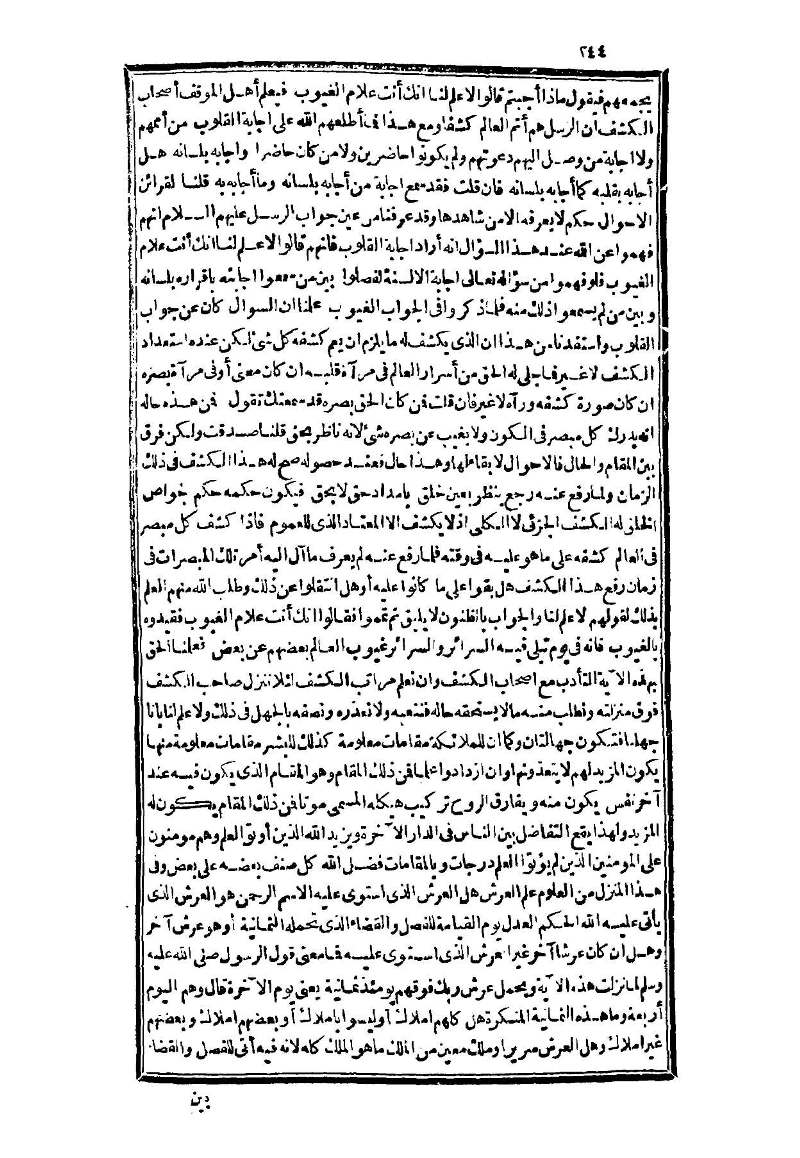 ٢٤٤
يجمعهم فيقول ماذا أجبتم قالوا لا علم لنا انك أنت علام الغيوب فيعلم أهل الموقف أصحاب
الكشف ان الرسل هم أتم العالم كشفا ومع هذا فما أطلعهم الله على اجابة القلوب من أممهم
ولا اجابة من وصل اليهم دعوتهم ولم يكونوا حاضرين ولا من كان حاضرا وأجابه بلسانه هل
أجابه بقلبه كما أجابه بلسانه فان قلت فقد سمع اجابة من أجابه بلسانه وما أجابه به قلنا لقرائن
الاحوال حكم لا يعرفه الا من شاهدها وقد عرفنا من عين جواب الرسل عليهم السلام انهم
فهموا عن الله عند هذا السؤال انه أراد اجابة القلوب فانهم قالوا لا علم لنا انك أنت علام
الغيوب فلو فهموا من سؤاله تعالى اجابة الالسنة لفصلوا بين من سمعوا اجابته باقراره بلسانه
وبين من لم يسمعوا ذلك منه فلما ذكروا فى الجواب الغيوب علمنا ان السوال كان عن جواب
القلوب واستفدنا من هذا ان الذى يكشف له ما يلزم ان يعم كشفه كل شئ لكن عنده استعداد
الكشف لا غير فما جلى له الحق من أسرار العالم فى مرآة قلبه ان كان معنى أو فى مرآة بصره
ان كان صورة كشفه ورآه لا غير فان قلت فمن كان الحق بصره قد سمعتك تقول فمن هذه حاله
انه يدرك كل مبصر فى الكون ولا يغيب عن بصره شئ لانه ناظر بحق قلنا صدقت ولكن فرق
بين المقام والحال فالاحوال لا بقاء لها وهذا حال فعند حصوله صح له هذا الكشف فى ذلك
الزمان ولما رفع عنه رجع ينظر بعين خلق بامداد حق لا بحق فيكون حكمه حكم خواص
الخلق له الكشف الجزئى لا الكلى اذ لا يكشف الا المعتاد الذى للعموم فاذا كشف كل مبصر
فى العالم كشفه على ما هو عليه فى وقته فلما رفع عنه لم يعرف ما آل اليه أمر تلك المبصرات فى
زمان رفع هذا الكشف هل بقوا على ما كانوا عليه أو هل انتقلوا عن ذلك وطلب الله منهم العلم
بذلك لقولهم لا علم لنا والجواب بالظنون لا يليق ثم تمموا فقالوا انك أنت علام الغيوب فقيدوه
بالغيوب فانه فى يوم تبلى فيه السرائر والسرائر غيوب العالم بعضهم عن بعض فعلمنا الحق
بهذه الآية التأدب مع اصحاب الكشف وان نعلم مراتب الكشف لئلا ننزل صاحب الكشف
فوق منزلته ونطلب منه ما لا يستحقه حاله فنتعبه ولا نعذره ونصفه بالجهل فى ذلك ولا علم لنا بانا
جهلنا فتكون جهالتان وكما ان للملائكة مقامات معلومة كذلك للبشر مقامات معلومة منها
يكون المزيد لهم لا يتعدونها وان ازدادوا علما فمن ذلك المقام وهو المقام الذى يكون فيه عند
آخر نفس يكون منه ويفارق الروح تركيب هيكله المسمى موتا فمن ذلك المقام يكون له
المزيد ولهذا يقع التفاضل بين الناس فى الدار الآخرة ويزيد الله الذين أوتوا العلم وهم مومنون
على المومنين الذين لم يؤتوا العلم درجات وبالمقامات فضل الله كل صنف بعضه على بعض وفى
هذا المنزل من العلوم علم العرش هل العرش الذى استوى عليه الاسم الرحمن هو العرش الذى
يأتى عليه الله الحكم العدل يوم القيامة للفصل والقضاء الذى تحمله الثمانية أو هو عرش آخر
وهل ان كان عرشا آخر غير العرش الذى استوى عليه فما معنى قول الرسول صلى الله عليه
وسلم لما نزلت هذه الآية ويحمل عرش ربك فوقهم يومئذ ثمانية يعنى يوم الآخرة قال وهم اليوم
أربعة وما هذه الثمانية المنكرة هل كلهم املاك أو ليسوا باملاك أو بعضهم املاك وبعضهم
غير املاك وهل العرش سرير أو ملك معين من الملك ما هو الملك كله لانه فيه أتى للفصل والقضاء
بين